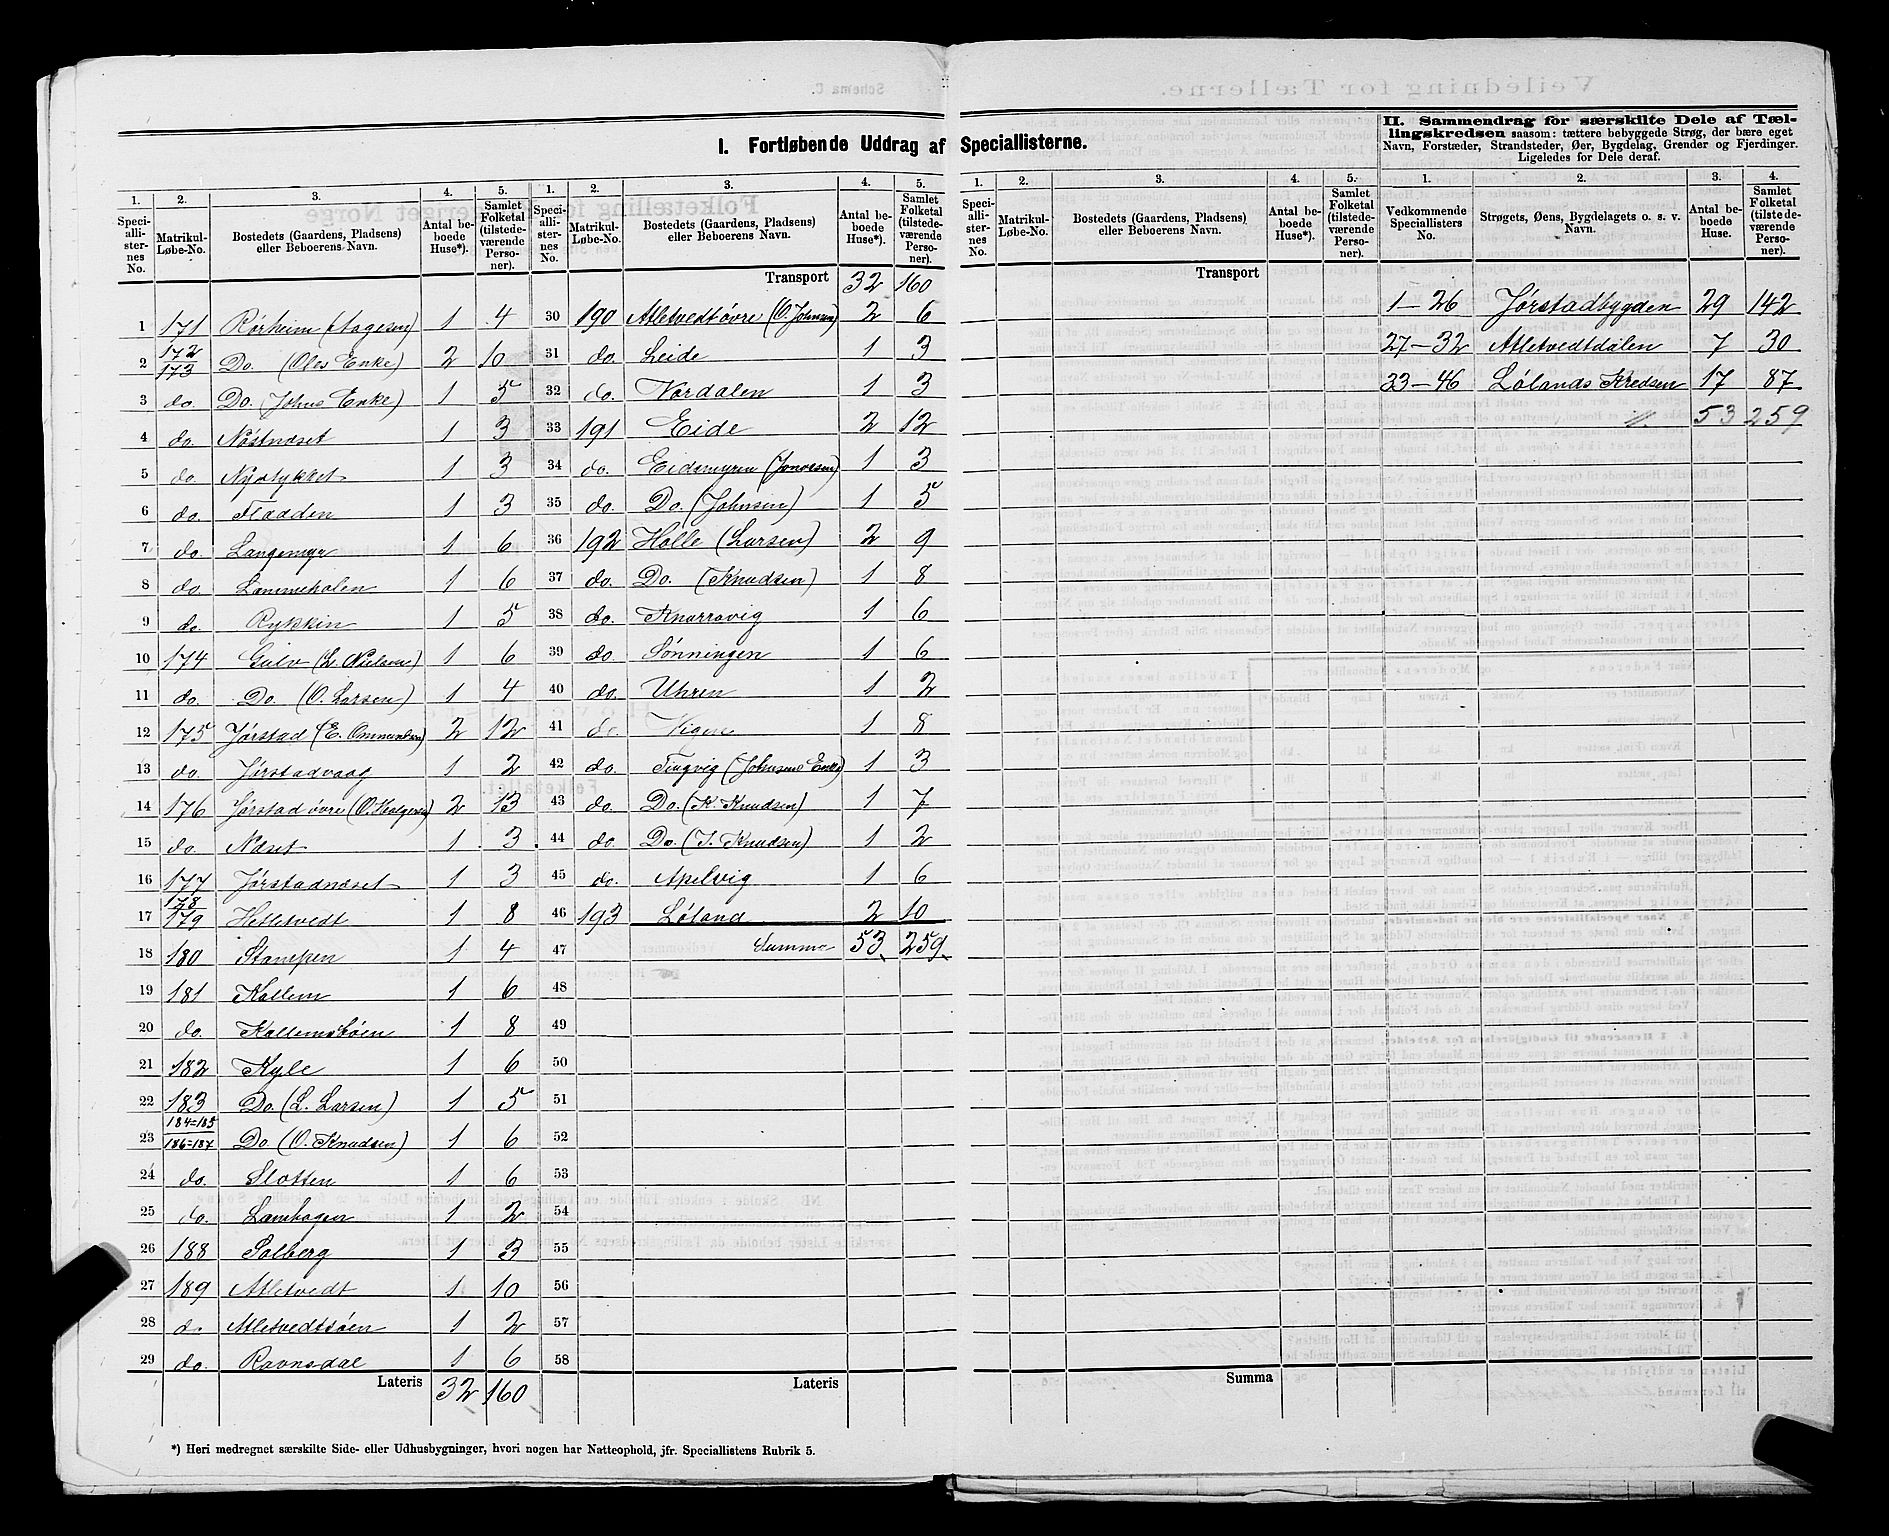 I. Fortløbende Uddrag af Speciallisterne.
1. 2. 3. 4. 5.
Speciallisternes No. Matrikul-Løbe-No. Bostedets (Gaardens, Pladsens) eller Beboerens Navn. Antal beboede Huse*). Samlet Folketal (tilstedeværende Personer).
1 171 Rørheim (Aagesen) 1 4
2 172 173 Do. (Oles Enke) 2 10
3 do. Do. (Johns Enke) 1 5
4 do. Nøstnæset 1 3
5 do. Nystykket 1 3
6 do. Fladden 1 3
7 do. Langemyr 1 6
8 do. Lammeholen 1 6
9 do. Rykkin 1 5
10 174 Gulv (L. Nielsen) 1 6
11 do. Do. (O. Larsen) 1 4
12 175 Jørstad (E. Ommundsen) 2 12
13 do. Jørstadvaag 1 2
14 176 Jørstad øvre (O. Holgersen) 2 13
15 do. Næset 1 3
16 177 Jørstadnæset 1 3
17 178 179 Hetletvedt 1 8
18 180 Stampen 1 4
19 181 Kallem 1 6
20 do. Kallemsbøen 1 8
21 182 Kyle 1 6
22 183 Do. (L. Larsen) 1 5
23 184=185 186=187 Do. (O. Knudsen) 1 6
24 do. Slotten 1 6
25 do. Lamhagen 1 2
26 188 Solberg 1 3
27 189 Atletvedt 1 10
28 do Atletvedtsøen 1 2
29 do. Ravnsdal 1 6
Lateris 32 160
1. 2. 3. 4. 5.
Speciallisternes No. Matrikul-Løbe-No. Bostedets (Gaardens, Pladsens) eller Beboerens Navn. Antal beboede Huse*). Samlet Folketal (tilstedeværende Personer).
Transport 32 160
30 190 Atletvedt øvre (O. Johnsen) 2 6
31 do. Leide 1 3
32 do. Nordalen 1 3
33 191 Eide 2 12
34 do. Eidsmyren 1 3
35 do. Do. (Johnsen) 1 5
36 192 Halle (Larsen) 2 9
37 do. Do. (Knudsen) 1 8
38 do. Knarravig 1 6
39 do. Sønningen 1 6
40 do. Uhren 1 2
41 do Vigen 1 8
42 do. Tingvig (Johnsens Enke) 1 3
43 do. Do. (K. Knudsen) 1 7
44 do. Do. (T. Knudsen) 1 2
45 do. Apelvig 1 6
46 193 Løland 2 10
47 Summa 53 259
48
49
50
51
52
53
54
55
56
57
58
Lateris
*) Heri medregnet særskilte Side- eller Udhusbygninger, hvori nogen har Natteophold, jfr. Speciallistens Rubrik 5.
1. 2. 3. 4. 5.
Speciallisternes No. Matrikul-Løbe-No. Bostedets (Gaardens, Pladsens) eller Beboerens Navn. Antal beboede Huse*). Samlet Folketal (tilstedeværende Personer).
Transport
Summa
II. Sammendrag for særskilte Dele af Tællingskredsen saasom: tættere bebyggede Strøg, der bære eget
Navn, Forstæder, Strandsteder, Øer, Bygdelag, Grender og Fjerdinger.
Ligeledes for Dele deraf.
1. 2. 3. 4.
Vedkommende Speciallisters No. Strøgets, Øens, Bygdelagets o. s. v. Navn. Antal beboede Huse. Samlet Folketal (tilstedeværende Personer).
1-26 Jørstadbygden 29 142
27-32 Atletvedtdalen 7 30
33-46 Lølands Kredsen 17 87
53 259